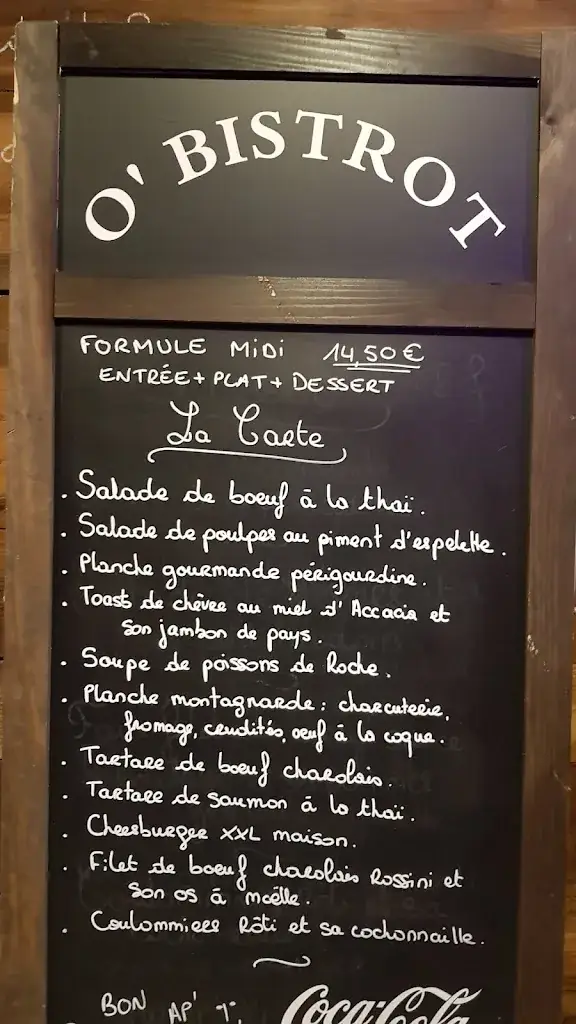 O' BISTROT
FORMULE MiDi 14,50 €
ENTRÉE + PLAT + DESSERT
La Carte
. Salade de boeuf à la thaï.
. Salade de poulpes au piment d'espelette.
. Planche gourmande périgourdine.
. Toast de chèvre au miel d'Accacia et
son jambon de pays.
. Soupe de poissons de Roche.
. Planche montagnarde : charcuterie,
fromage, crudités, oeuf à la coque.
. Tartare de boeuf charolais.
. Tartare de saumon à la thaï.
. Cheesburger XXL maison.
. Filet de boeuf charolais Rossini et
son os à moëlle.
. Coulommiers Rôti et sa cochonnaille.
BON AP' T.
Coca-Cola